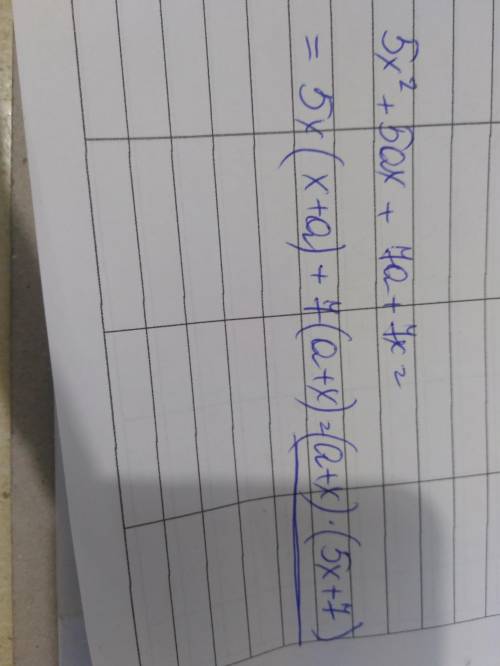 5x² + 5ax + 7a + 7x =
= 5x(x+a) + 7(a+x) = (a+x)·(5x+7)